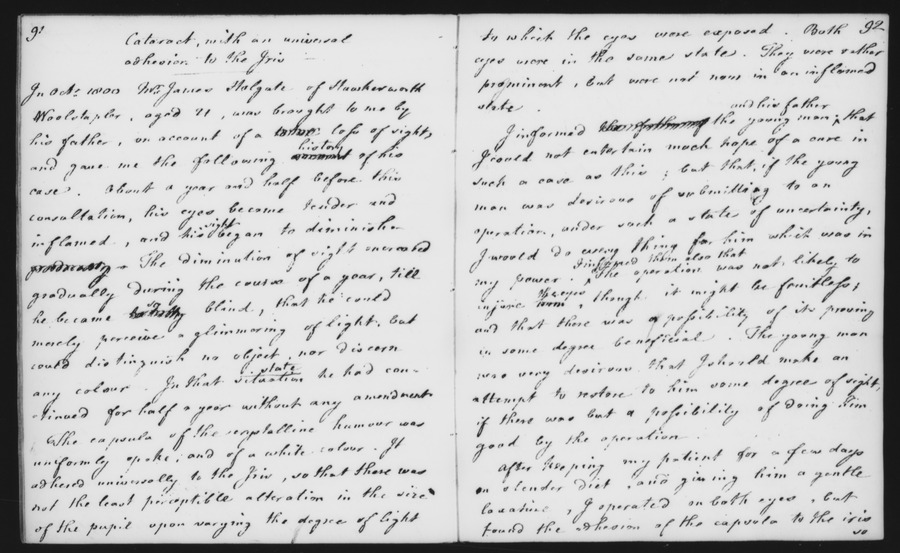 91
Cataract, with an universal
adhesion to the Iris
In Octr. 1800 Mr. James Holgate of Hawksworth
Woolstapler, aged 21, was brought to me by
his father, on account of a loss of sight,
history
and gave me the following account of his
case. About a year and half before this
consultation, his eyes became tender and
sight
inflamed, and his began to diminish.
gradually The diminution of sight increased
gradually during the course of a year, till
so
he became totally blind, that he could
merely perceive a glimmering of light, but
could distinguish no object, nor discern
state
any colour. In that situation he had con-
tinued for half a year without any amendment.
The capsula of the crystalline humour was
uniformly opake, and of a white colour. It
adhered universally to the Iris, so that there was
not the least perceptible alteration in the size
of the pupil upon varying the degree of light
92
to which the eyes were exposed. Both
eyes were in the same state. They were rather
prominent, but were not now in an inflamed
state.
and his father
I informed the young man, that
I could not entertain much hope of a cure in
such a case as this; but that, if the young
man was desirous of submitting to an
operation, under such a state of uncertainty,
I would do every thing for him which was in
I informed them also that
my power. The operation was not likely to
the eyes
injure them, though it might be fruitless;
and that there was a possibility of its proving
in some degree beneficial. The young man
was very desirous that I should make an
attempt to restore to him some degree of sight,
if there was but a possibility of doing him
good by the operation.
After keeping my patient for a few days
on slender diet, and giving him a gentle
laxative, I operated on both eyes, but
found the adhesion of the capsula to the iris
so